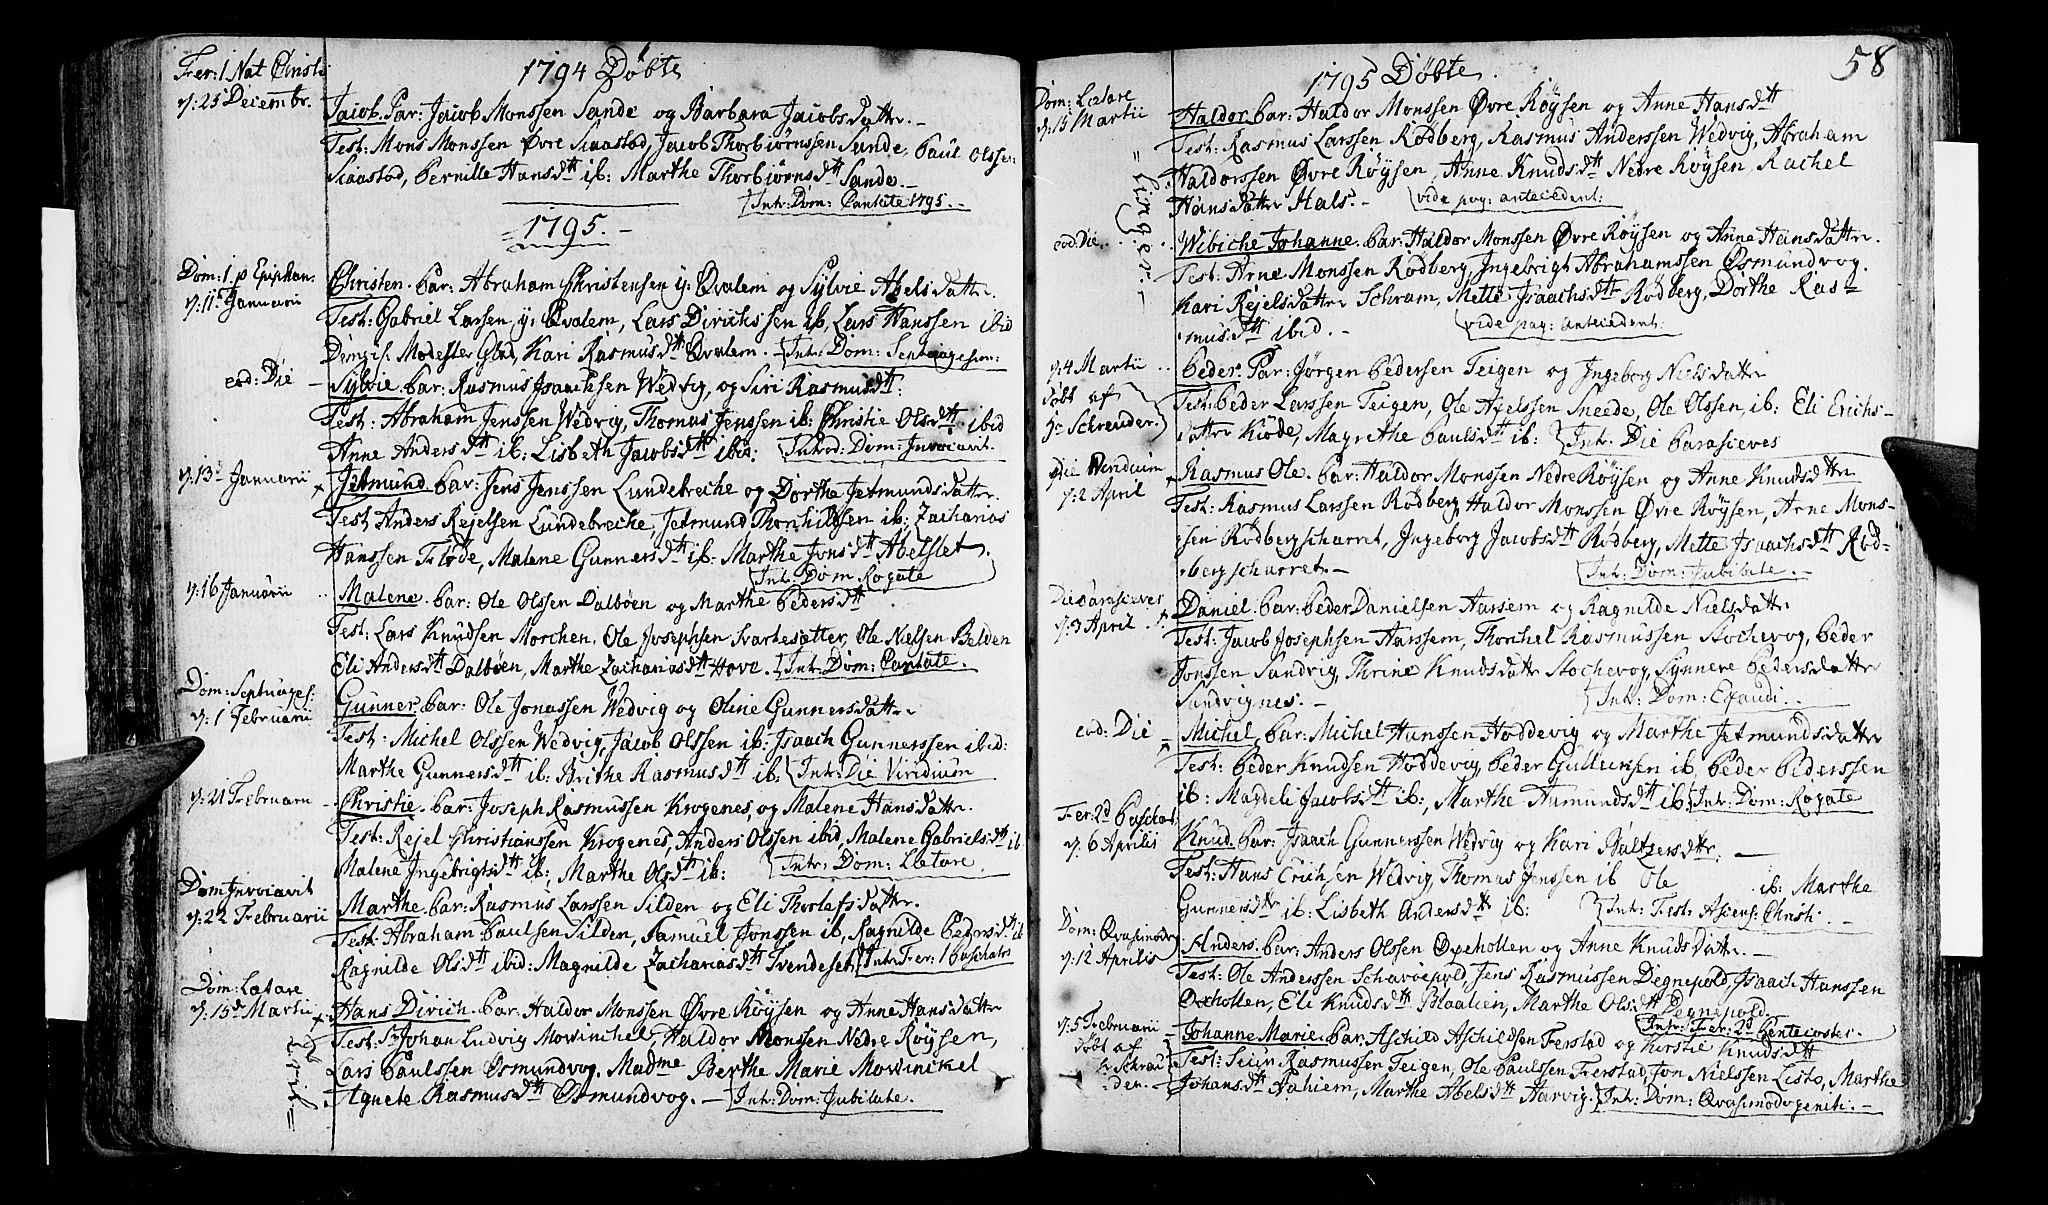 Fer: 1 Nat Christi
d: 25 Decembr.
1794 Döbte
Jacob. Par: Jacob Monssen Sande og Barbara Jacobsdatter.
Test: Mons Monssen Øvre Siaastad, Jacob Thorbiørnssen Sande, Paul Olssen
Siaastad, Pernille Hansdtt ib: Marthe Thorbiørnsdtt Sande.
Intr: Dom: Cantate 1795.
1795.
Dom: 1 p Epiphan.
d: 11 Januarii
Christen. Par: Abraham Christensen y: Qvalem og Sylvie Abelsdatter.
Test: Gabriel Larsen, y: Qvalem, Lars Dirichssen ib, Lars Hanssen ibid
Kari Rasmusdtt Qvalem. Intr: Dom: Septuagesim:
eod: Die
Sylvie. Par: Rasmus Isaachsen Wedvig, og Siri Rasmusdtt:
Test: Abraham Jenssen Wedvig, Thomas Jenssen ib: Christie Olsdtt ibid
Anne Andersdtt ib: Lisbeth Jacobsdtt ibid: Introd: Dom: Invocavit.
d: 13 Januarii
Jetmund Par: Jens Jenssen Lundebreche og Dorthe Jetmundsdatter.
Test Anders Rejelsen Lundebreche, Jetmund Thorkildsen ib: Zacharias
Hanssen Fløde, Malene Gunnersdtt ib: Marthe Jonsdtt Abelslet.
Intr: Dom Rogate
d: 16 Januarii
Malene. Par: Ole Olssen Dalbøen og Marthe Pedersdtt
Test: Lars Knudsen Morchen, Ole Josephsen Svartesætter, Ole Nielsen Belden
Eli Andersdtt Dalbøen, Marthe Zachariasdtt Hove. Intr: Dom: Cantate.
Dom: Septuages:
d: 1 Februarii
Gunner. Par: Ole Jonassen Wedvig og Oline Gunnersdatter
Test: Michel Olssen Wedvig, Jacob Olssen ib: Isaach Gunnerssen ibid:
Marthe Gunnersdtt ib: Brithe Rasmusdtt ib: Intr: Die Viridium
d: 21 Februarii
Christie. Par: Joseph Rasmussen Krogenes, og Malene Hansdatter.
Test: Rejel Christianssen Krogenes, Anders Olssen ibid, Malene Gabrielsdtt ib
Malene Ingebrigtsdtt ib: Marthe Olsdtt ib: Intr: Dom: Lætare
Dom Invocavit
d: 22 Februarii
Marthe. Par: Rasmus Larssen Silden og Eli Thorlafsdatter.
Test: Abraham Paulsen Silden, Samuel Jonssen ib, Ragnilde Pedersdtt ib
Ragnilde Olsdtt ibid: Magnilde Zachariasdtt Svendeset. Intr: Fer: 1 Paschatos
Dom: Lætare
d: 15 Martii
Hans Dirich. Par: Haldor Monssen Øvre Røysen og Anne Hansdatter
Test: Sr Johan Ludvig Mowinckel, Haldor Monssen Nedre Røysen,
Lars Paulssen Osmundvog. Madme Berthe Marie Mowinckel
Agnete Rasmusdtt Osmundvog. Intr: Dom: Jubilate.
58
1795 Döbte.
Dom: Lætare
d: 15 Martii
Haldor. Par: Haldor Monssen Øvre Røysen og Anne Hansdtt
Test: Rasmus Larssen Rødberg, Rasmus Anderssen Wedvig, Abraham
Haldorssen Øvre Røysen, Anne Knudsdtt Nedre Røysen, Rachel
Hansdatter Hals. vide pag: antecedent:
eod: Die
Wibiche Johanne. Par: Haldor Monssen Øvre Røysen og Anne Hansdatter.
Test: Arne Monssen Rødberg, Ingebrigt Abrahamssen Osmundvog.
Kari Rejelsdatter Schram, Mette Isaachsdtt Rødberg, Dorthe Ras=
musdtt ibid. vide pag: antecedent:
d: 4 Martii
döbt af
Hr Schreuder.
Peder. Par: Jørgen Pedersen Teigen og Ingeborg Nielsdatter
Test: Peder Larssen Teigen, Ole Axelssen Sneede, Ole Olssen, ib: Eli Erichs-
datter Kiøde, Magrethe Paulsdtt ib: Intr: Die Parasceves
Die Viridium
d: 2 April
Rasmus Ole. Par: Haldor Monssen Nedre Røysen og Anne Knudsdatter
Test: Rasmus Larssen Rødberg, Haldor Monssen Øvre Røysen, Arne Mons-
sen Rødbergscharret, Ingeborg Jacobsdtt Rødberg, Mette Isaachsdtt Rød-
bergscharret. Intr: Dom: Jubilate.
Die Parasceves
d: 3 April
Daniel. Par: Peder Danielsen Aarsem og Ragnilde Nielsdatter
Test: Jacob Josephsen Aarssem, Thorchel Rasmussen Stochevog, Peder
Jonssen Sandvig, Thrine Knudsdatter Stochevog, Synnere Pedersdatter
Sandvignes. Intr: Dom: Exaudi.
eod: Die
Michel. Par: Michel Hanssen Hoddevig og Marthe Jetmundsdatter
Test: Peder Knudsen Hoddevig, Peder Gullechsen ib, Peder Pederssen
ib: Magdeli Jacobsdtt ib:, Marthe Aamundsdtt ib: Intr: Dom: Rogate
Fer: 2d Paschat:
d: 6 Aprilis
Knud. Par: Isaach Gunnerssen Wedvig og Kari Baltzersdtr:
Test: Hans Erichsen Wedvig, Thomas Jenssen ib Ole ib: Marthe
Gunnersdtr ib: Lisbeth Andersdtr ib: Intr: Fest: Ascens: Christi
Dom: Qvasimodo
d: 12 Aprilis
Anders. Par: Anders Olssen Oxehollen og Anne Knudsdatter
Test: Ole Anderssen Scharvepold, Jens Rasmussen Degnepold, Isaach Hanssen
Oxehollen, Eli Knudsdtt Blaalien, Marthe Olsdtt Degnepold.
Intr: Fer: 2d Pentecostes
d: 5 Februarii
döbt af
Hr Schreu-
der.
Johanne Marie. Par: Aschild Aschildsen Ferstad og Kirstie Knudsdtt
Test: Siur Rasmussen Teigen, Ole Paulssen Ferstad, Jon Nielssen Listo, Marthe
Johansdtt Aahiem, Marthe Abelsdtt Aarvig. Intr: Dom: Qvasimodogeniti.